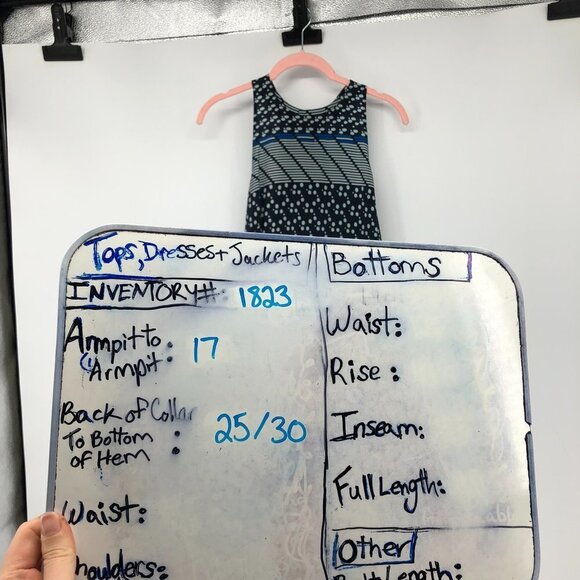 Tops, Dresses + Jackets
INVENTORY#: 1823
Armpit to
Armpit: 17
Back of Collar
To Bottom
of Hem : 25/30
Waist:
Shoulders:
Bottoms
Waist:
Rise :
Inseam:
Full Length:
Other
Length: